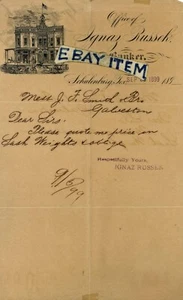 Office of
Ignaz Russek,
Banker,
EBAY ITEM
Schulenburg, Tex.
189
Mess J. F. Smith & Bro
Galveston
Dear Sirs.
Please quote me price on
Sash Weights &
Respectfully Yours,
IGNAZ RUSSEK